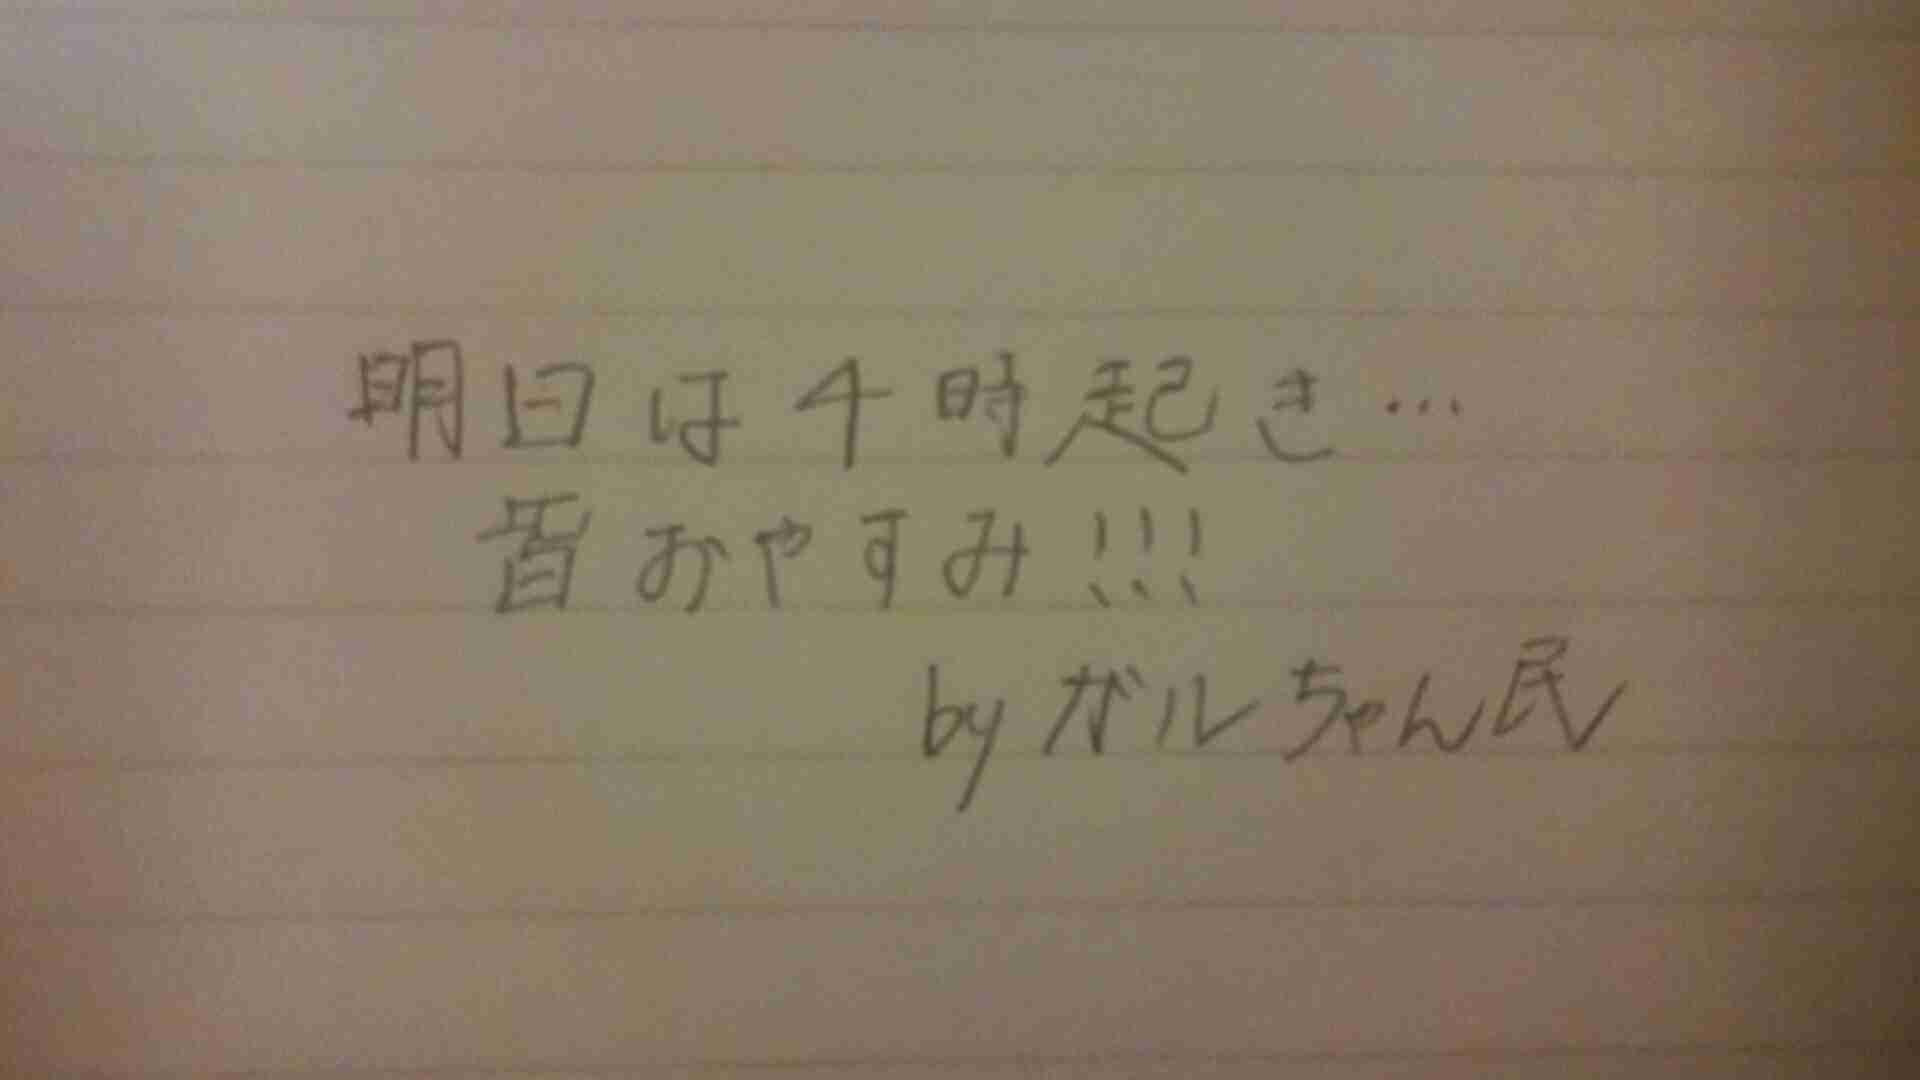 明日は4時起き…
皆おやすみ!!!
byガルちゃん民